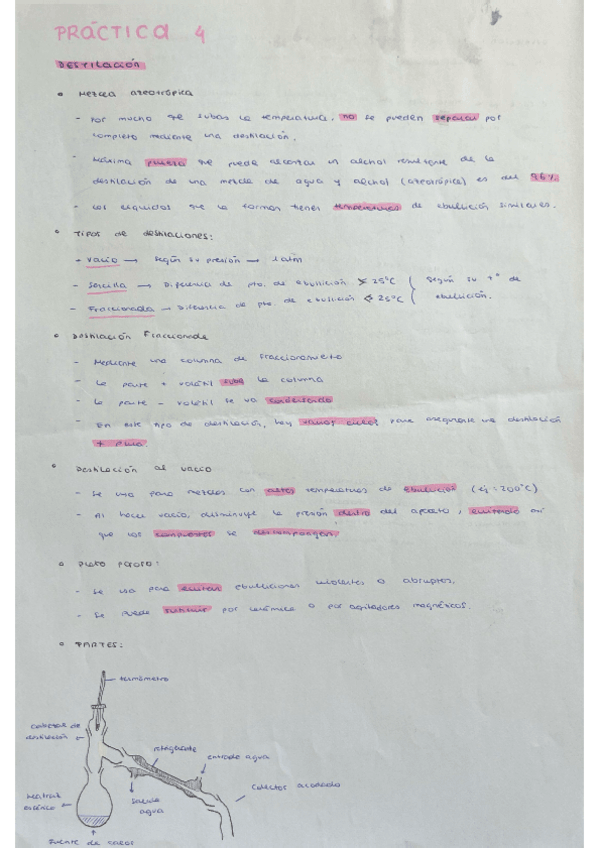 PRÁCTICA 4
DESTILACIÓN
• Mezcla azeotrópica
- Por mucho que subas la temperatura, no se pueden separar por
completo mediante una destilación.
- Máxima pureza que puede alcanzar un alcohol resultante de la
destilación de una mezcla de agua y alcohol (azeotrópica) es del 96%
- Los líquidos que la forman tienen temperaturas de ebullición similares.
• Tipos de destilaciones:
- Vacío → Según su presión → 1 atm
- Sencilla → Diferencia de pto. de ebullición > 25°C
- Fraccionada → Diferencia de pto. de ebullición < 25°C
Según su Tº de
ebullición.
• Destilación Fraccionada
- Mediante una columna de fraccionamiento
- La parte + volátil sube la columna
- La parte - volátil se va condensando
- En este tipo de destilación, hay varios ciclos para asegurarse una destilación
+ pura.
• Destilación al vacío
- Se usa para mezclas con altas temperaturas de ebullición (ej: 200°C)
- Al hacer vacío, disminuye la presión dentro del aparato, evitando así
que los compuestos se descompongan.
• Plato poroso:
- Se usa para evitar ebulliciones violentas o abruptas.
- Se puede sustituir por cerámica o por agitadores magnéticos.
• PARTES:
termómetro
cabezal de
destilación
refrigerante
entrada agua
Colector acodado
Matraz
esférico
Salida
agua
Fuente de calor